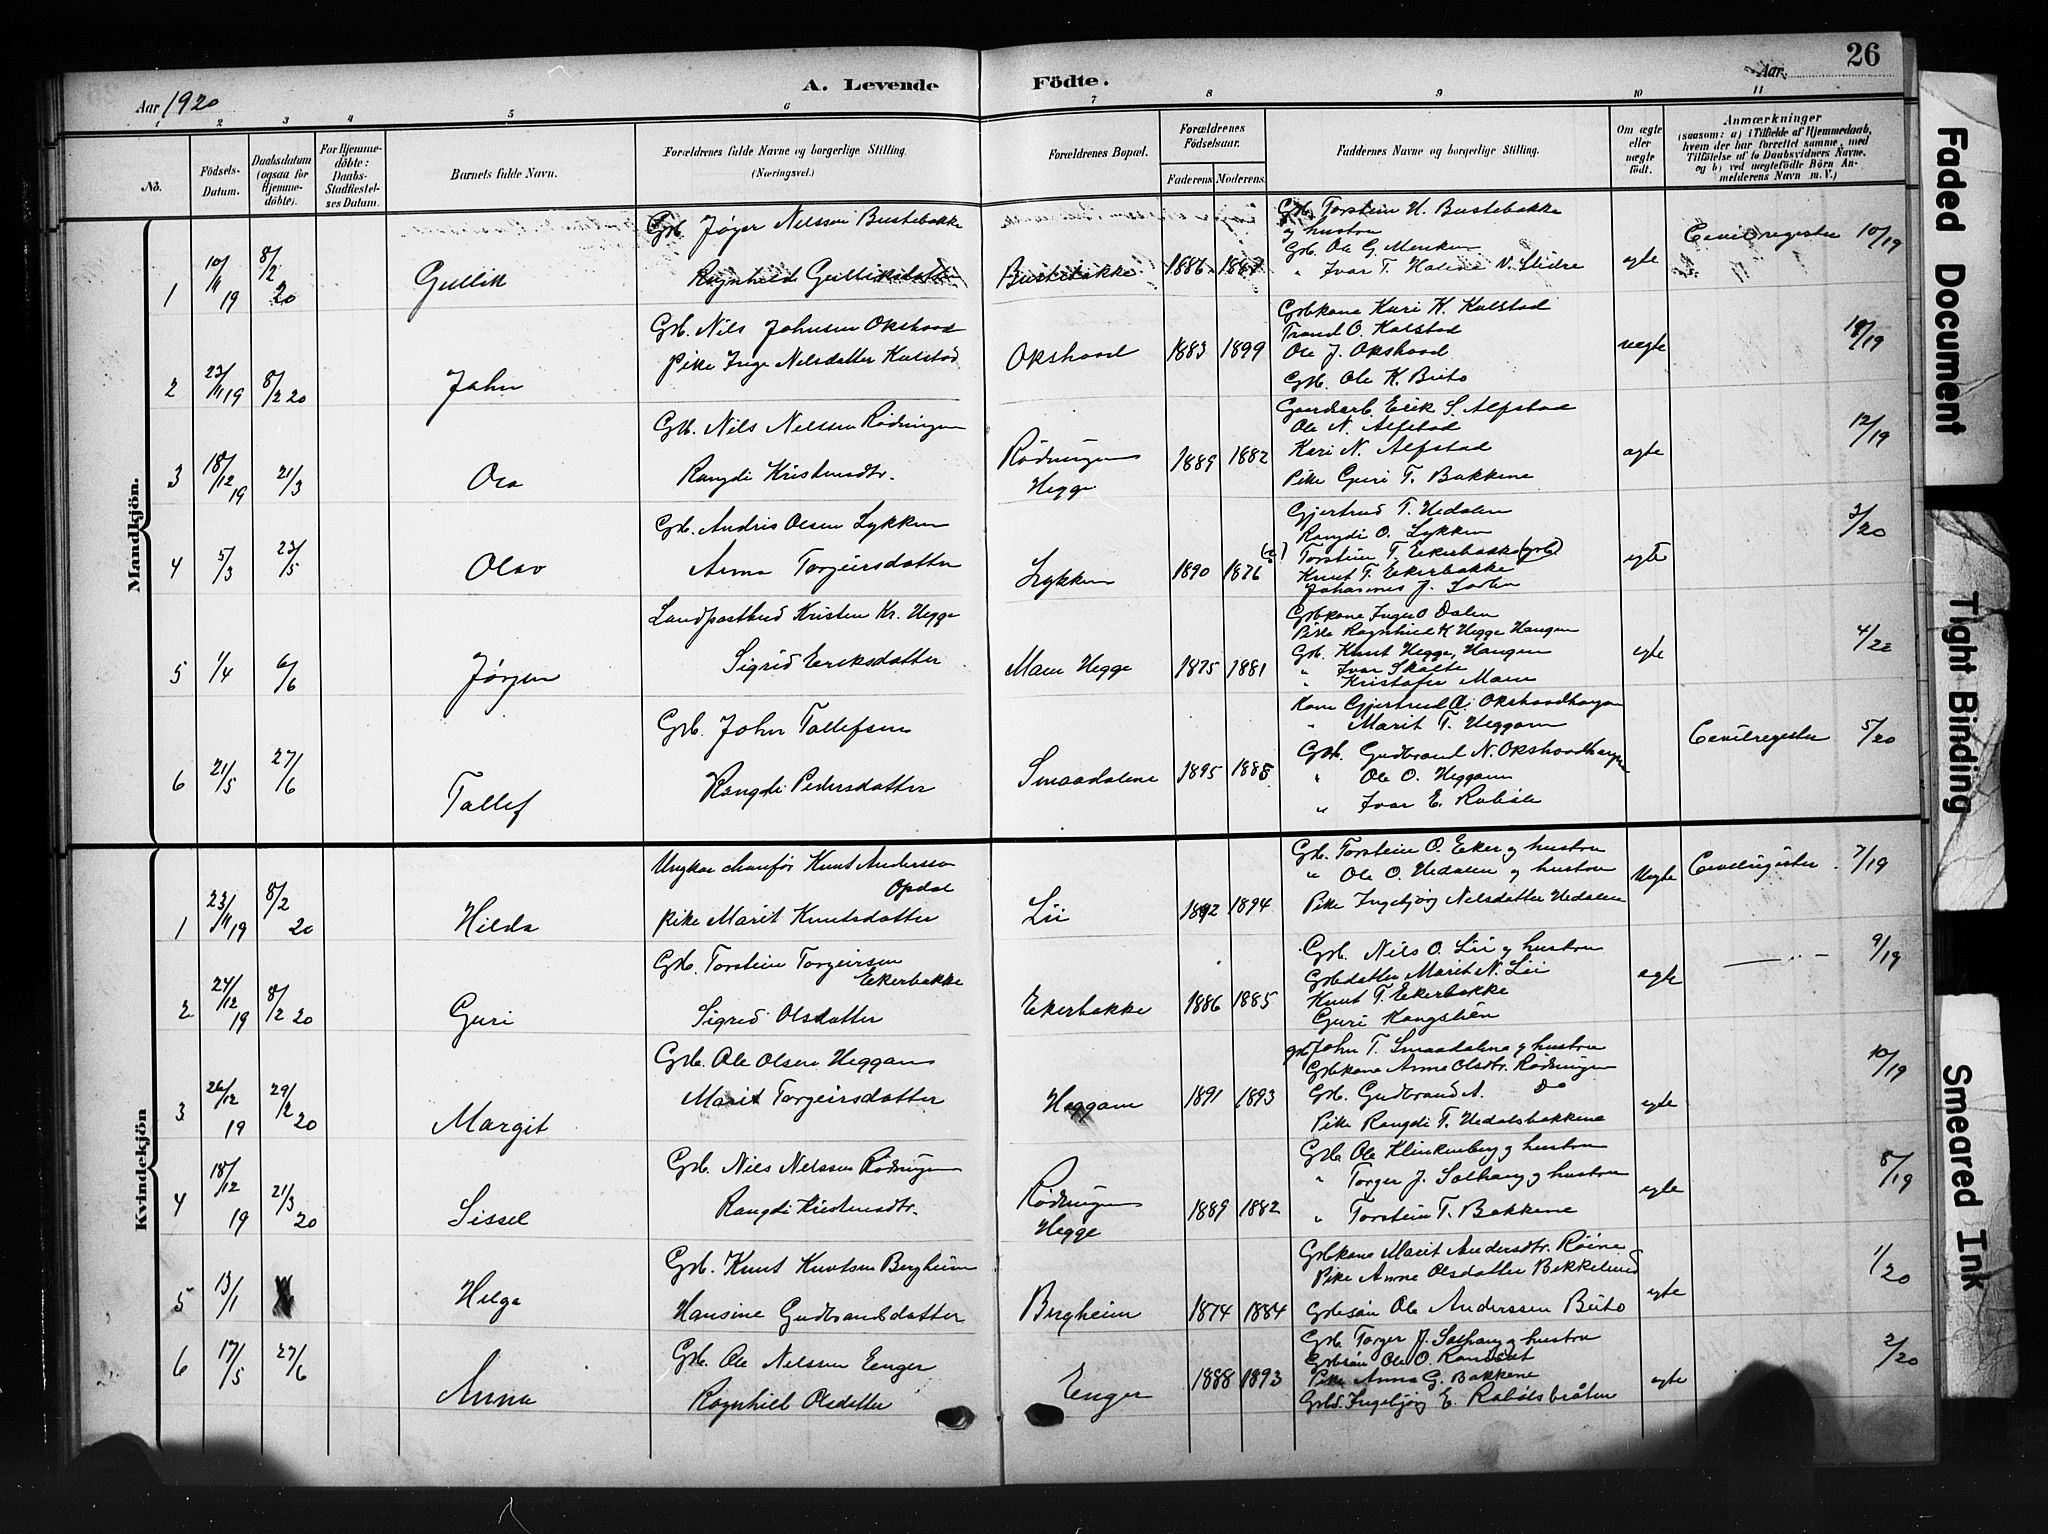 26
A. Levende Födte.
Aar 1920
Aar
1 2 3 4 5 6 7 8 9 10 11
No.
Födsels-Datum.
Daabsdatum (ogsaa for Hjemme-döbte).
For Hjemme-döbte: Daabs-Stadfæstel-ses Datum.
Barnets fulde Navn.
Forældrenes fulde Navne og borgerlige Stilling. (Næringsvei.)
Forældrenes Bopæl.
Forældrenes Födselsaar.
Faderens. Moderens.
Faddernes Navne og borgerlige Stilling.
Om ægte eller uægte födt.
Anmærkninger
(saasom: a) i Tilfælde af Hjemmedaab, hvem der har forrettet samme, med Tilföielse af to Daabsvidners Navne, og b) ved uægtefödte Börn An-melderens Navn m. V.)
Mandkjön.
1 10/11 19 8/2 20 Gullik
Grb. Jøger Nilssen Bustebakke
Ragnhild Gulliksdatter
Bustebakke 1886 1887
Grb. Torstein N. Bustebakke
og hustru
Grb. Ole G. Menken
" Ivar T. V. Slidre
egte
Civilregister 10/19
2 23/11 19 8/2 20 John
Grb. Nils Johnsen Okshovd
Pike Inge Nilsdatter Kalstad
Okshovd 1883 1899
Grbkone Kari K. Kalstad
Trond O. Kalstad
Ole J. Okshovd
Grb. Ole K. Beito
uegte
18/19
3 18/12 19 21/3 Ola
Grb. Nils Nilssen Rødningen
Rangdi Kristensdtr.
Rødningen
Hegge
1889 1882
Gaardarb. Erik S. Alfstad
Ole N. Alfstad
Kari N. Alfstad
Pike Guri T. Bakkene
egte
12/19
4 5/3 23/5 Olav
Grb. Andris Olsen Lykken
Anna Torgeirsdatter
Lykken 1890 1876
Gjertrud T. Hedalen
Rangdi O. Lykken
Torstein T. Ekerbakke (grb)
Knut T. Ekerbakke
Johannes J.
egte
3/20
5 1/4 6/6 Jørgen
Landpostbud Kristen Kr. Hegge
Sigrid Eriksdatter
Moen Hegge 1875 1881
Grbkone Inger O Dalen
Pike Ragnhild K Hegge Haugen
Grb. Knut Hegge, Haugen
" Ivar Skolte
" Kristofer Moen
egte
4/22
6 21/5 27/6 Tollef
Grb. John Tollefsen
Rangdi Pedersdatter
Smaadalene 1895 1885
Kone Gjertrud A. Okshovdhaugen
" Marit T. Heggom
Grb. Gudbrand N. Okshovdhaugen
" Ole O. Heggom
" Ivar E. Robøle
Civilregister 5/20
Kvindekjön
1 23/11 19 8/2 20 Hilda
Ungkar chauför Knut Anderssen
Opdal
pike Marit Knutsdatter
Lii 1892 1894
Grb. Torstein O. Eker og hustru
" Ole O. Hedalen og hustru
Pike Ingebjørg Nilsdatter Hedalen
Uegte
Civilregister 7/19
2 24/12 19 8/2 20 Guri
Grb. Torstein Torgeirsen
Ekerbakke
Sigrid Olsdatter
Ekerbakke 1886 1885
Grb. Nils O. Lii og hustru
Grbdatter Marit N. Lii
Knut T. Ekerbakke
Guri Kongslien
egte
— " — 9/19
3 26/12 19 29/2 20 Margit
Grb. Ole Olsen Heggom
Marit Torgeirsdatter
Heggom 1891 1893
grb John T. Smaadalene og hustru
Grbkone Anne Olsdtr. Rødningen
Grb. Gudbrand A. Do
Pike Rangdi T. Hedalsbakkene
egte
10/19
4 18/12 19 21/3 20 Sissel
Grb. Nils Nilssen Rødningen
Rangdi Kristensdtr.
Rødningen
Hegge
1889 1882
Grb. Ole Klinkenberg og hustru
" Torger J. Solhaug og hustru
" Torstein T. Bakkene
egte
8/19
5 13/1 Helga
Grb. Knut Knutsen Bergheim
Hansine Gudbrandsdatter
Bergheim 1874 1884
Grbkone Marit Andersdtr. Røine
Pike Anne Olsdatter Bekkelund
Grbsøn Ole Anderssen Beito
egte
1/20
6 17/5 27/6 Anna
Grb. Ole Nilssen Enger
Ragnhild Olsdatter
Enger 1888 1893
Grb. Torger J. Solhaug og hustru
Grbsøn Ole O.
Pike Anna G. Bakkene
Grbd. Ingebjørg E. Robølsbråten
egte
2/20
Faded Document
Tight Binding
Smeared Ink